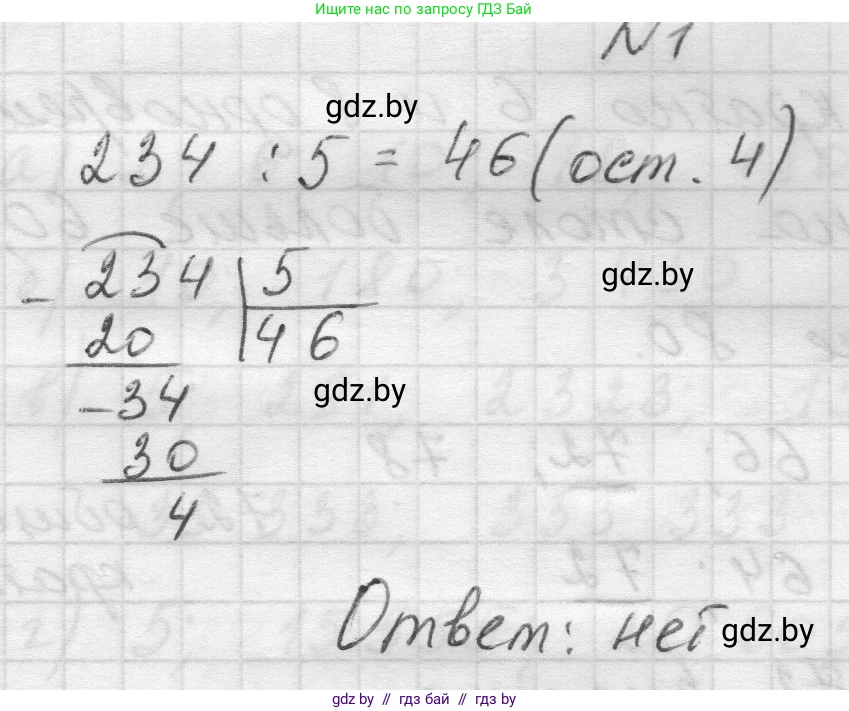 Ищите нас по запросу ГДЗ Бай
N 1
gdz.by
234 : 5 = 46 (ост. 4)
- 234 | 5
gdz.by
20 | 46
gdz.by
- 34
30
4
Ответ: нет
gdz.by
gdz by // гдз бай // гдз by